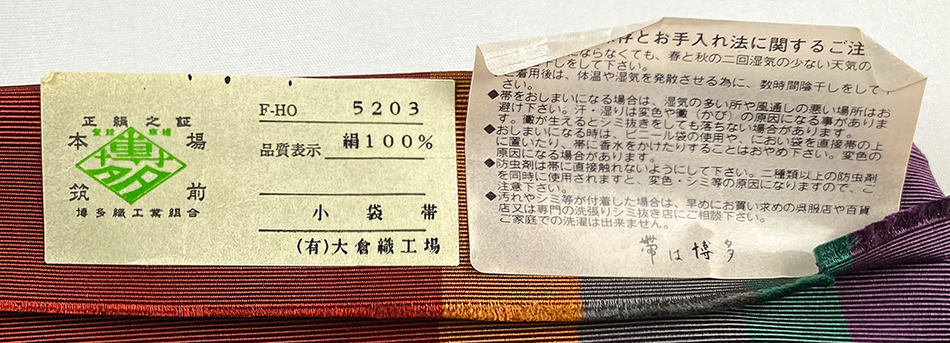 正絹之証
登録 商標
本場
博多
筑前
博多織工業組合
F-HO 5203
品質表示 絹100%
小袋帯
(有)大倉織工場
存とお手入れ法に関するご注
にならなくても、春と秋の二回湿気の少ない天気の
干しをして下さい。
ご着用後は、体温や湿気を発散させる為に、数時間陰干しをして
さい。
◆帯をおしまいになる場合は、湿気の多い所や風通しの悪い場所はお
避け下さい。汗・湿りは変色や黴(かび)の原因になる事がありま
す。黴が生えるとシミ抜きをしても落ちない場合があります。
◆おしまいになる時は、ビニール袋の使用や、におい袋を直接帯の上
に置いたり、帯に香水をかけたりすることはおやめ下さい。変色の
原因になる場合があります。
◆防虫剤は帯に直接触れないようにして下さい。二種類以上の防虫剤
を同時に使用されますと、変色・シミ等の原因になりますので、ご
注意下さい。
◆汚れやシミ等が付着した場合は、早めにお買い求めの呉服店や百貨
店又は専門の洗張りシミ抜き店にご相談下さい。
ご家庭での洗濯は出来ません。
帯は博多